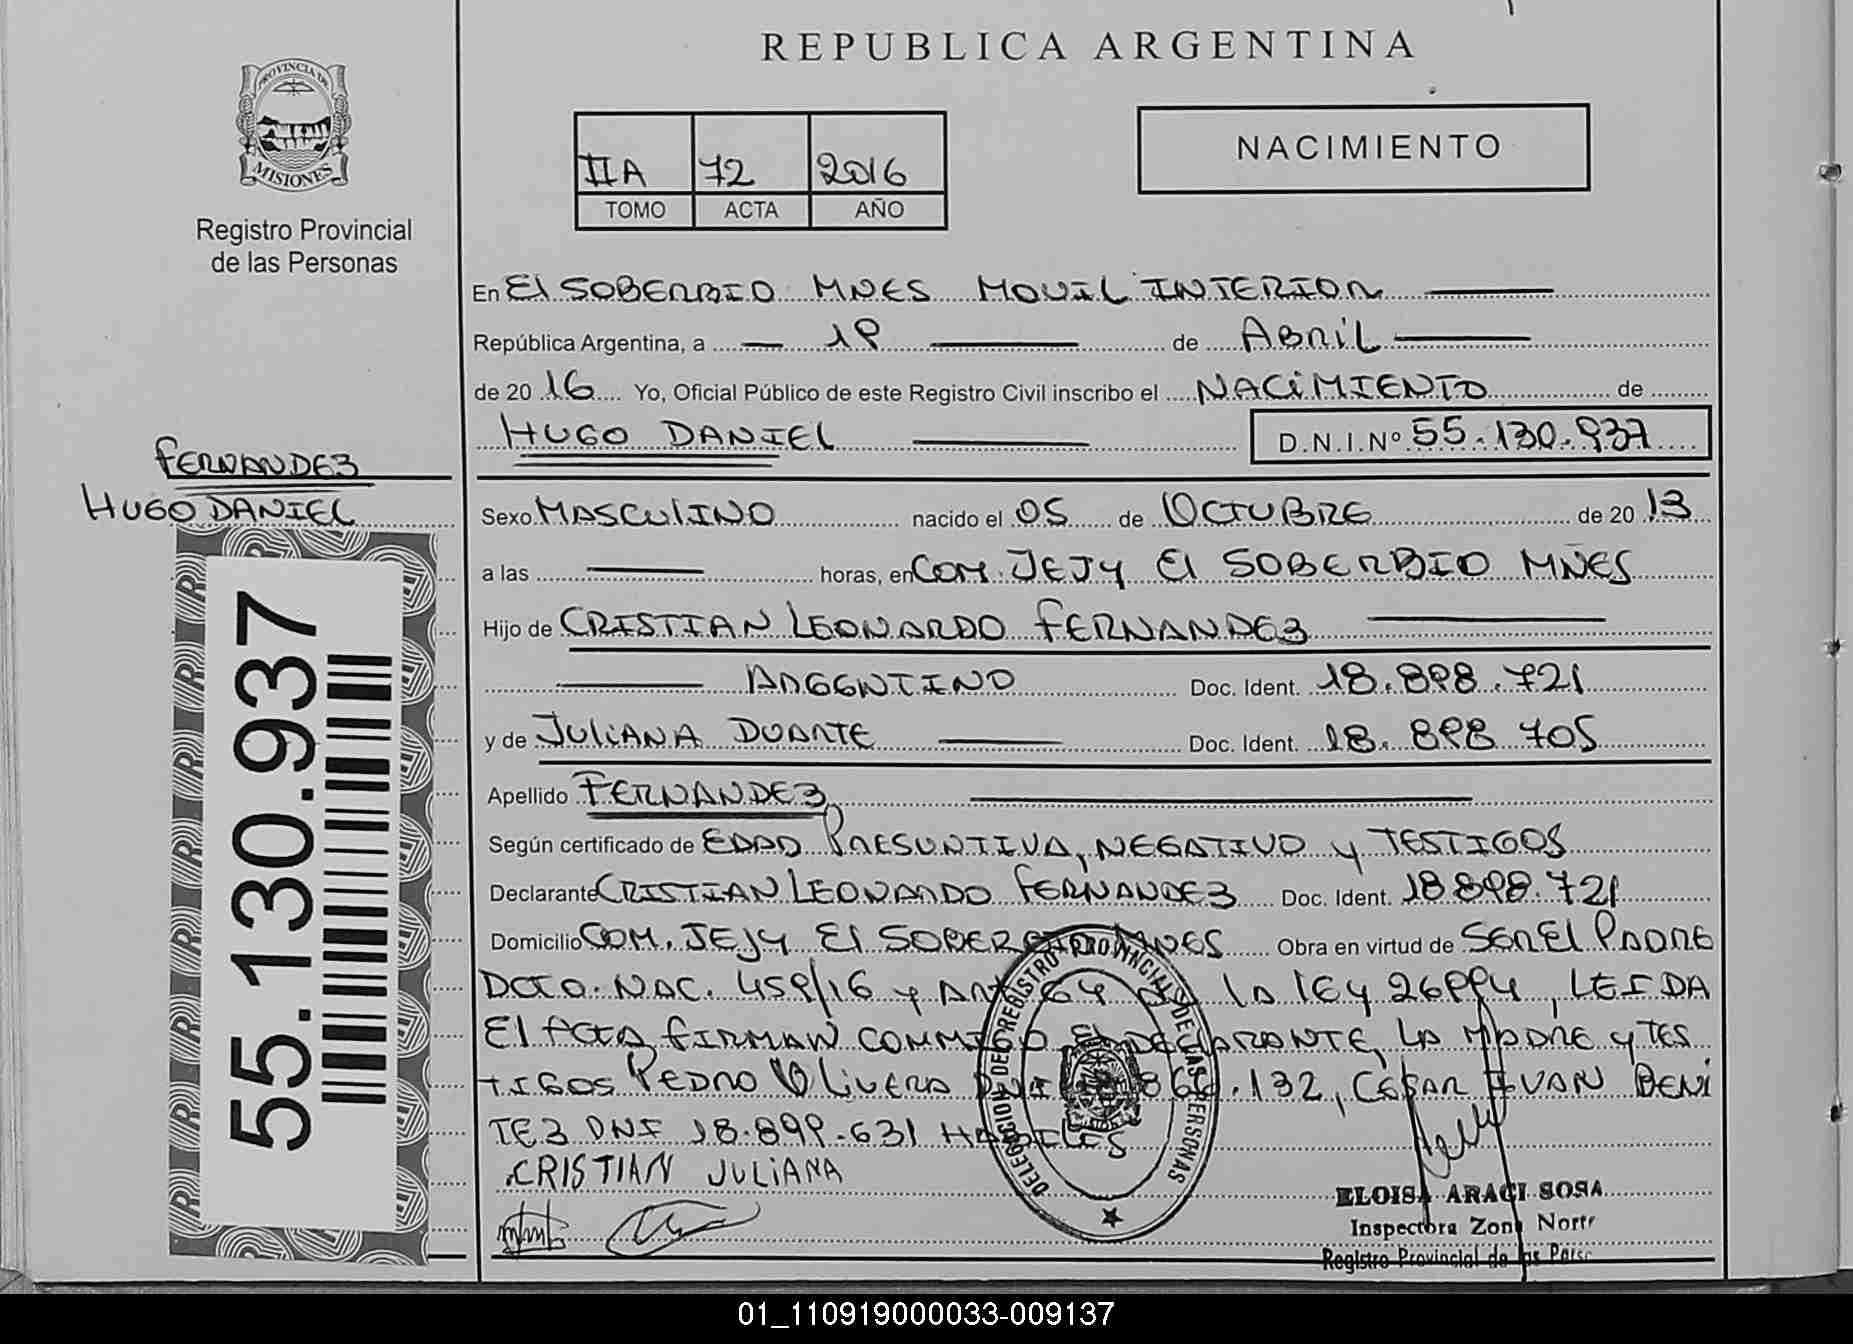 REPUBLICA ARGENTINA
PROVINCIA DE
MISIONES
Registro Provincial
de las Personas
IIA 72 2016
TOMO ACTA AÑO
NACIMIENTO
En El SOBERBIO MNES MOVIL INTERIOR
República Argentina, a 19 de ABRIL
de 20 16 Yo, Oficial Público de este Registro Civil inscribo el NACIMIENTO de
HUGO DANIEL D.N.I.Nº 55.130.937
FERNANDEZ
HUGO DANIEL
55.130.937
Sexo MASCULINO nacido el 05 de OCTUBRE de 20 13
a las horas, en COM. JEJY El SOBERBIO MÑES
Hijo de CRISTIAN LEONARDO FERNANDEZ
ARGENTINO Doc. Ident. 18.898.721
y de JULIANA DUARTE Doc. Ident. 18.898 705
Apellido FERNANDEZ
Según certificado de EDAD PRESUNTIVA, NEGATIVO y TESTIGOS
Declarante CRISTIAN LEONARDO FERNANDEZ Doc. Ident. 18 898.721
Domicilio COM. JEJY El SOBERBIO MNES Obra en virtud de SER El PADRE
DCTO. NAC. 459/16 y ART 64 DE LA lEy 26994, LEIDA
El ACTA FIRMAN CONMIGO El DECLARANTE, LA MADRE y TES
TIGOS PEDRO OLIVERA DNI 132, CESAR IVAN BENI
TEZ DNI 18.899.631 HABILES
CRISTIAN JULIANA
DELEGACION DEL REGISTRO PROVINCIAL DE LAS PERSONAS
ELOISA ARACI SOSA
Inspectora Zona Norte
Registro Provincial de las Pers
01_110919000033-009137